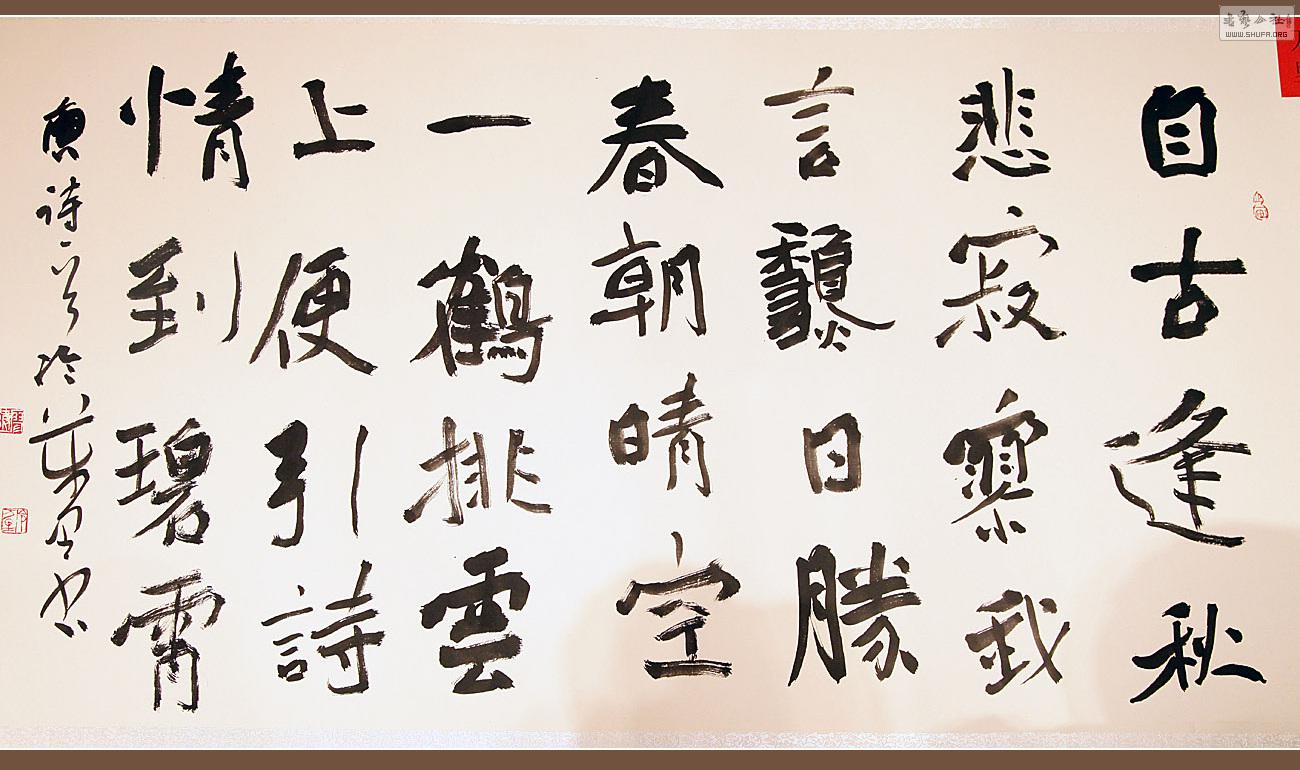 自古逢秋
悲寂寥我
言秋日勝
春朝晴空
一鶴排雲
上便引詩
情到碧霄
唐诗一首
WWW.SHUFA.ORG